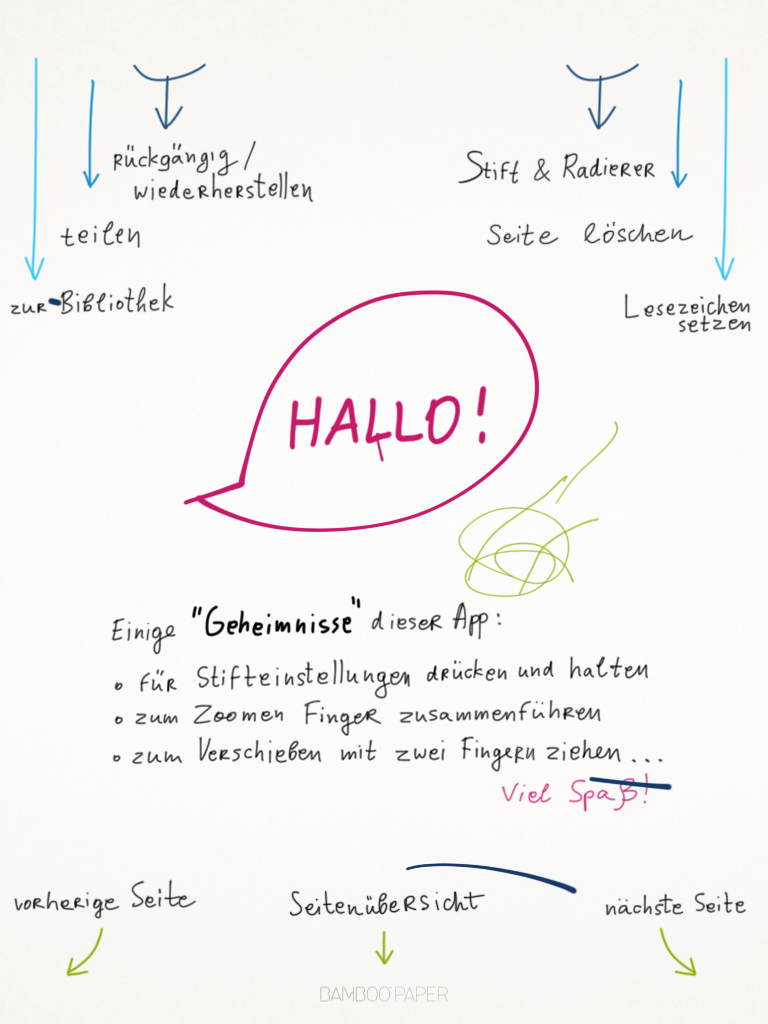 Rückgängig /
wiederherstellen
Stift & Radierer
teilen
Seite löschen
zur Bibliothek
Lesezeichen
setzen
HALLO!
Einige "Geheimnisse" dieser App:
• für Stifteinstellungen drücken und halten
• zum Zoomen Finger zusammenführen
• zum Verschieben mit zwei Fingern ziehen...
Viel Spaß!
vorherige Seite
Seitenübersicht
nächste Seite
BAMBOO PAPER